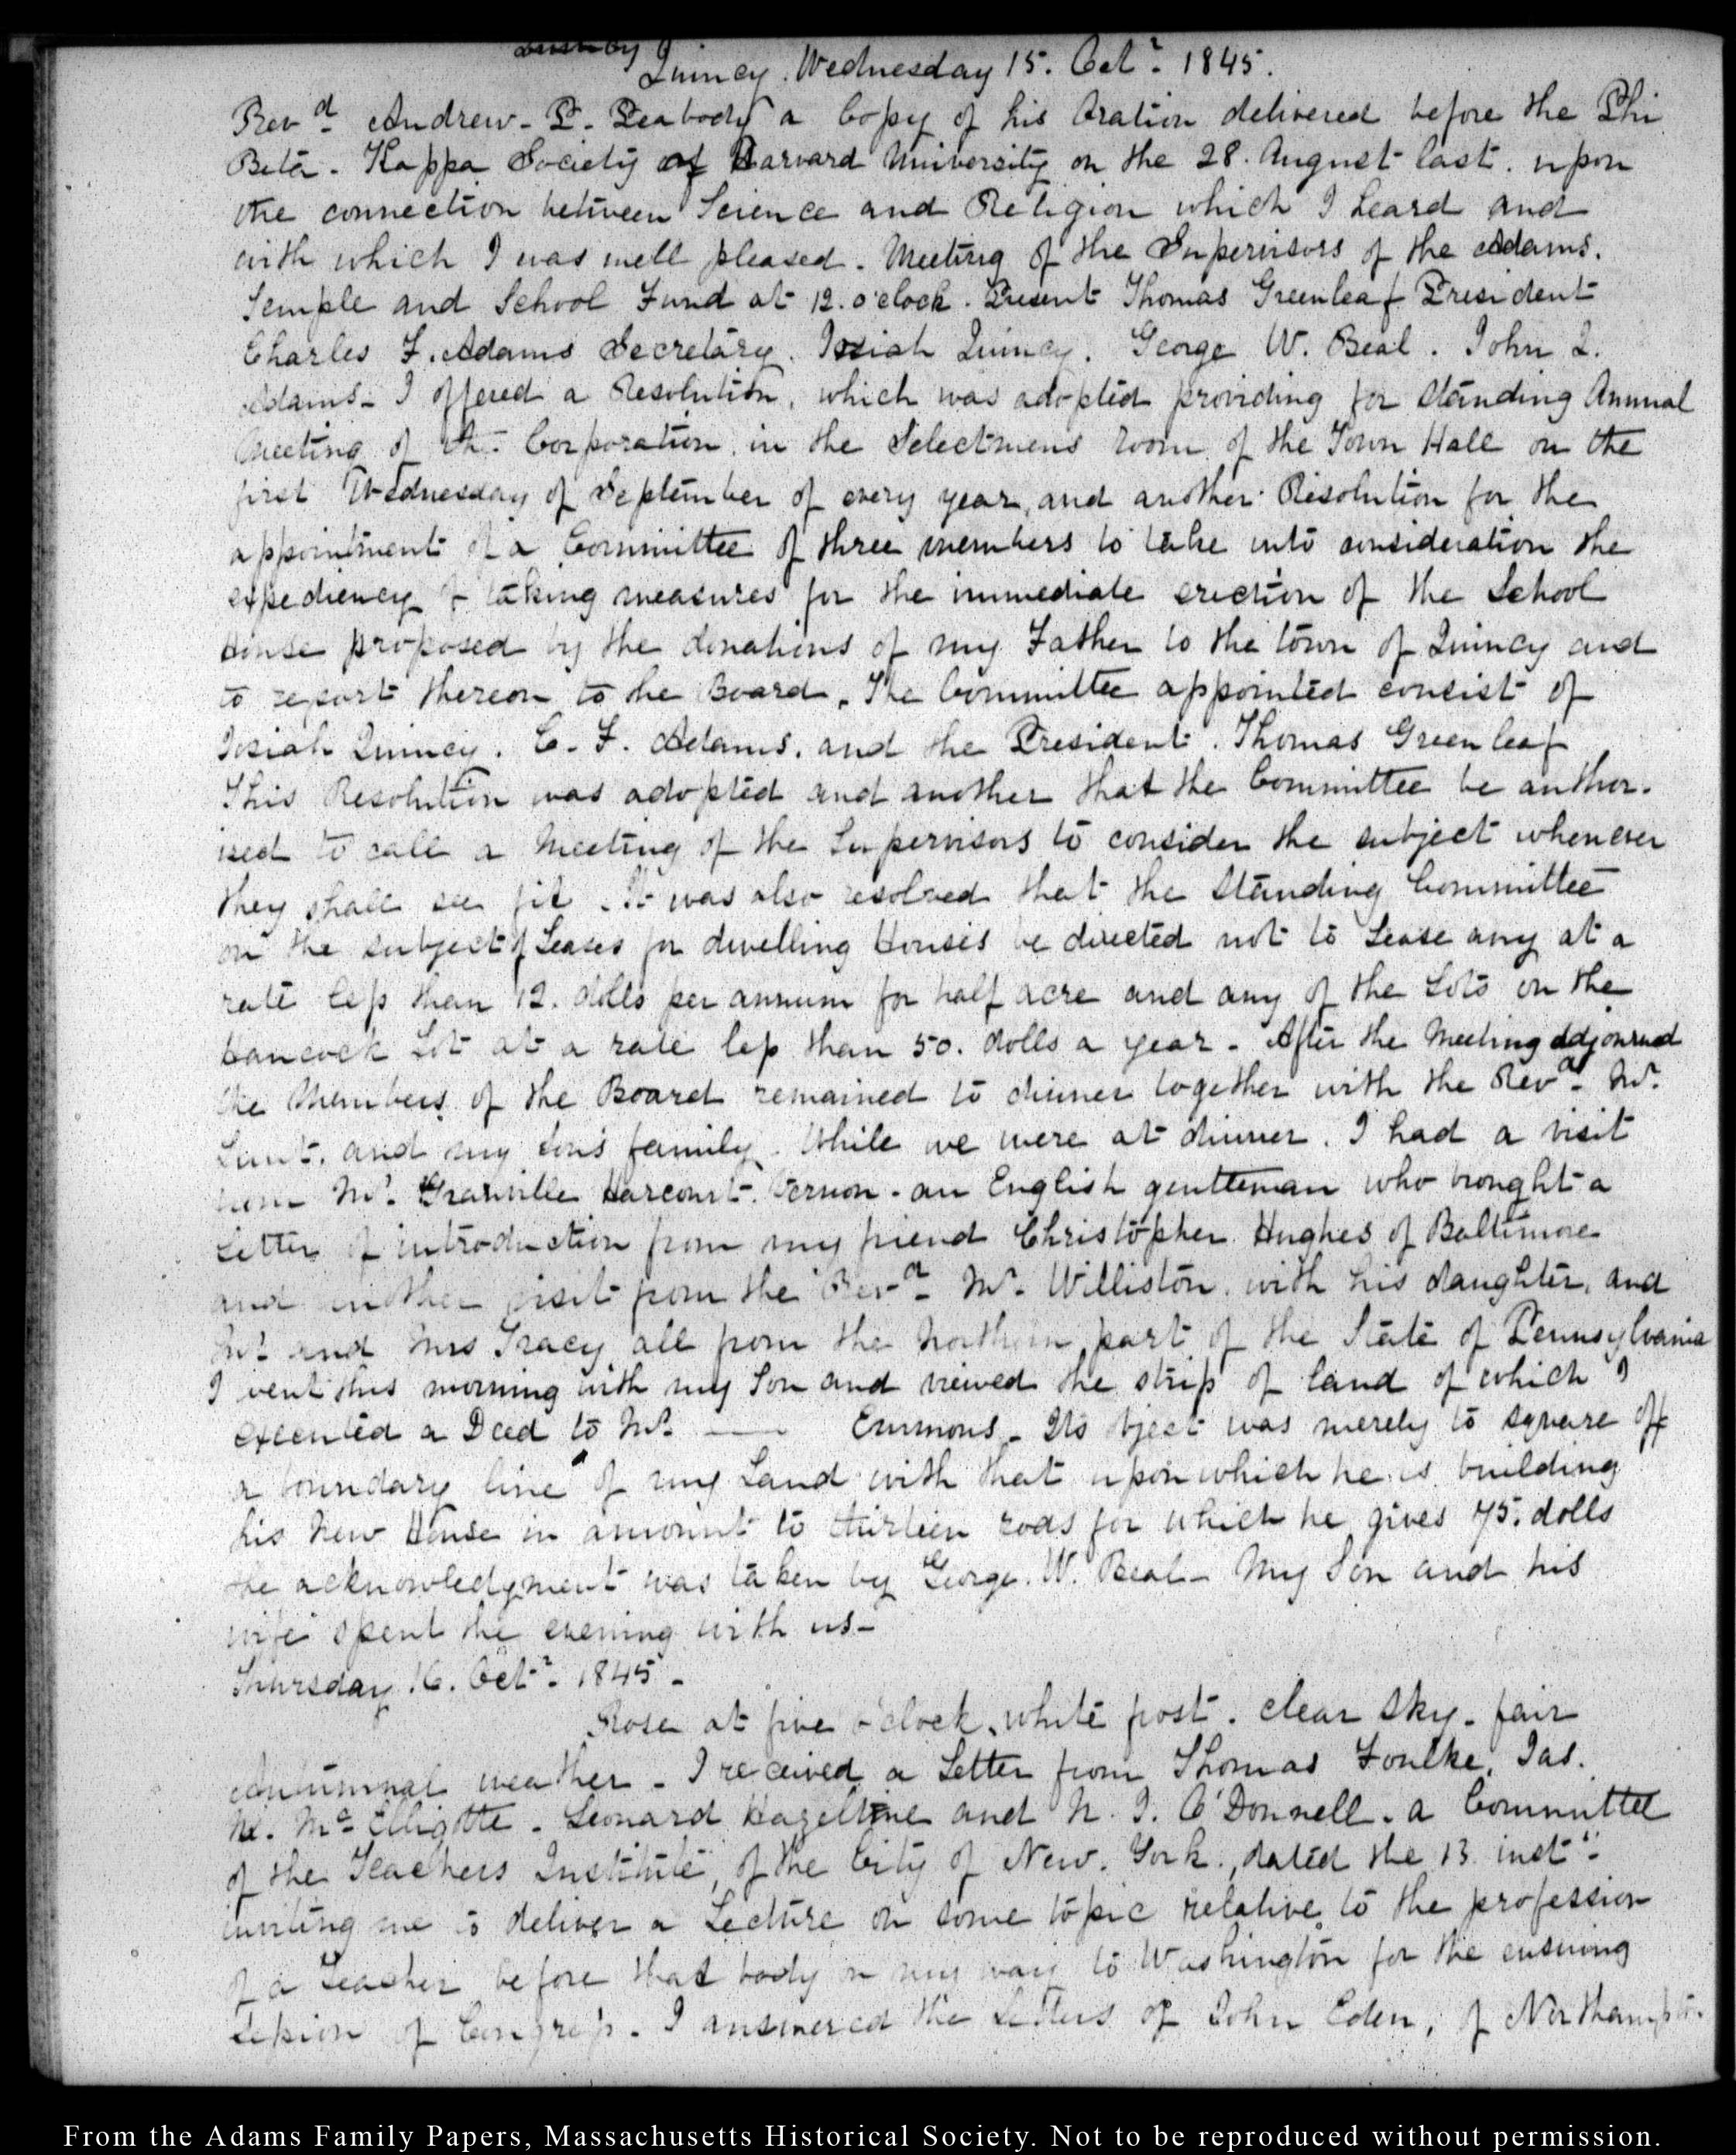 Quincy. Wednesday 15. Octr. 1845.
Revd. Andrew. P. Peabody a Copy of his Oration delivered before the Phi
Beta. Kappa Society of Harvard University on the 28. August last. upon
the connection between Science and Religion which I heard and
with which I was well pleased. Meeting of the Supervisors of the Adams.
Temple and School Fund at 12. o'clock. Present Thomas Greenleaf President
Charles F. Adams Secretary. Josiah Quincy. George W. Beal. John Q.
Adams. I offered a Resolution, which was adopted providing for standing Annual
Meeting of the Corporation in the Selectmens room of the Town Hall on the
first Wednesday of September of every year, and another Resolution for the
appointment of a Committee of three members to take into consideration the
expediency of taking measures for the immediate erection of the School
House proposed by the donations of my Father to the town of Quincy and
to report thereon to the Board. The Committee appointed consist of
Josiah Quincy. C. F. Adams. and the President. Thomas Greenleaf
This Resolution was adopted and another that the Committee be author-
ised to call a Meeting of the Supervisors to consider the subject whenever
they shall see fit. It was also resolved that the Standing Committee
on the subject of Leases for dwelling Houses be directed not to Lease any at a
rate less than 12. dolls per annum for half acre and any of the Lots on the
Hancock Lot at a rate less than 50. dolls a year. After the Meeting adjourned
the Members of the Board remained to dinner together with the Revd. Mr.
Lunt. and my Son's family. While we were at dinner. I had a visit
from Mr. Granville Harcourt. Vernon. an English gentleman who brought a
Letter of introduction from my friend Christopher Hughes of Baltimore
and another visit from the Revd. Mr. Williston. with his daughter, and
Mr. and Mrs Tracy all from the Northern part of the State of Pennsylvania
I went this morning with my Son and viewed the strip of land of which I
executed a Deed to Mr. —— Emmons. Its object was merely to square off
a boundary line of my Land with that upon which he is building
his New House in amount to thirteen rods for which he gives 75. dolls
the acknowledgment was taken by George. W. Beal. My Son and his
wife spent the evening with us.
Thursday 16. Octr. 1845.
Rose at five o'clock. white frost. clear sky. fair
Autumnal weather. I received a Letter from Thomas Foulke, Jas.
N. Mc Elligotte. Leonard Hazeltine and N. J. O'Donnell. a Committee
of the Teachers Institute, of the City of New. York., dated the 13. instt.
inviting me to deliver a Lecture on some topic relative to the profession
of a Teacher before that body on my way to Washington for the ensuing
Session of Congress. I answered the Letters of John Eden, of
From the Adams Family Papers, Massachusetts Historical Society. Not to be reproduced without permission.